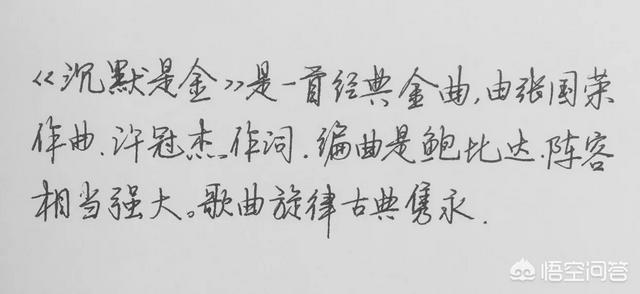 《沉默是金》是一首经典金曲,由张国荣
作曲.许冠杰作词.编曲是鲍比达.阵容
相当强大。歌曲旋律古典隽永.
悟空问答